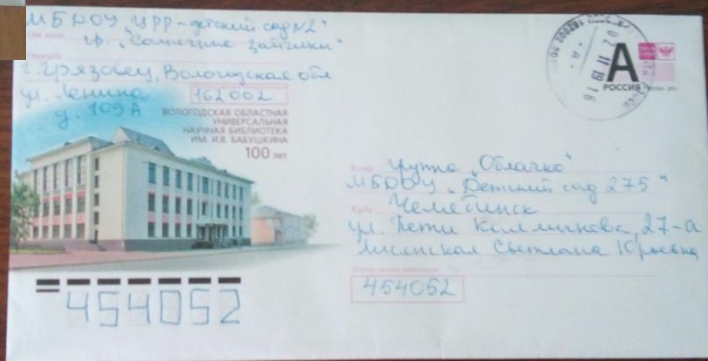 МБДОУ ЦРР-детский сад №2"
гр. "Солнечные зайчики"
г. Грязовец, Вологодская обл
ул. Ленина 162002
д. 109А
ВОЛОГОДСКАЯ ОБЛАСТНАЯ
УНИВЕРСАЛЬНАЯ
НАУЧНАЯ БИБЛИОТЕКА
ИМ. И.В. БАБУШКИНА
100 лет
А
РОССИЯ
Кому группа "Облачко"
МБДОУ "Детский сад 275"
Куда Челябинск
ул. Пети Калмыкова, 27-а
Светлана Юрьевна
454052
454052